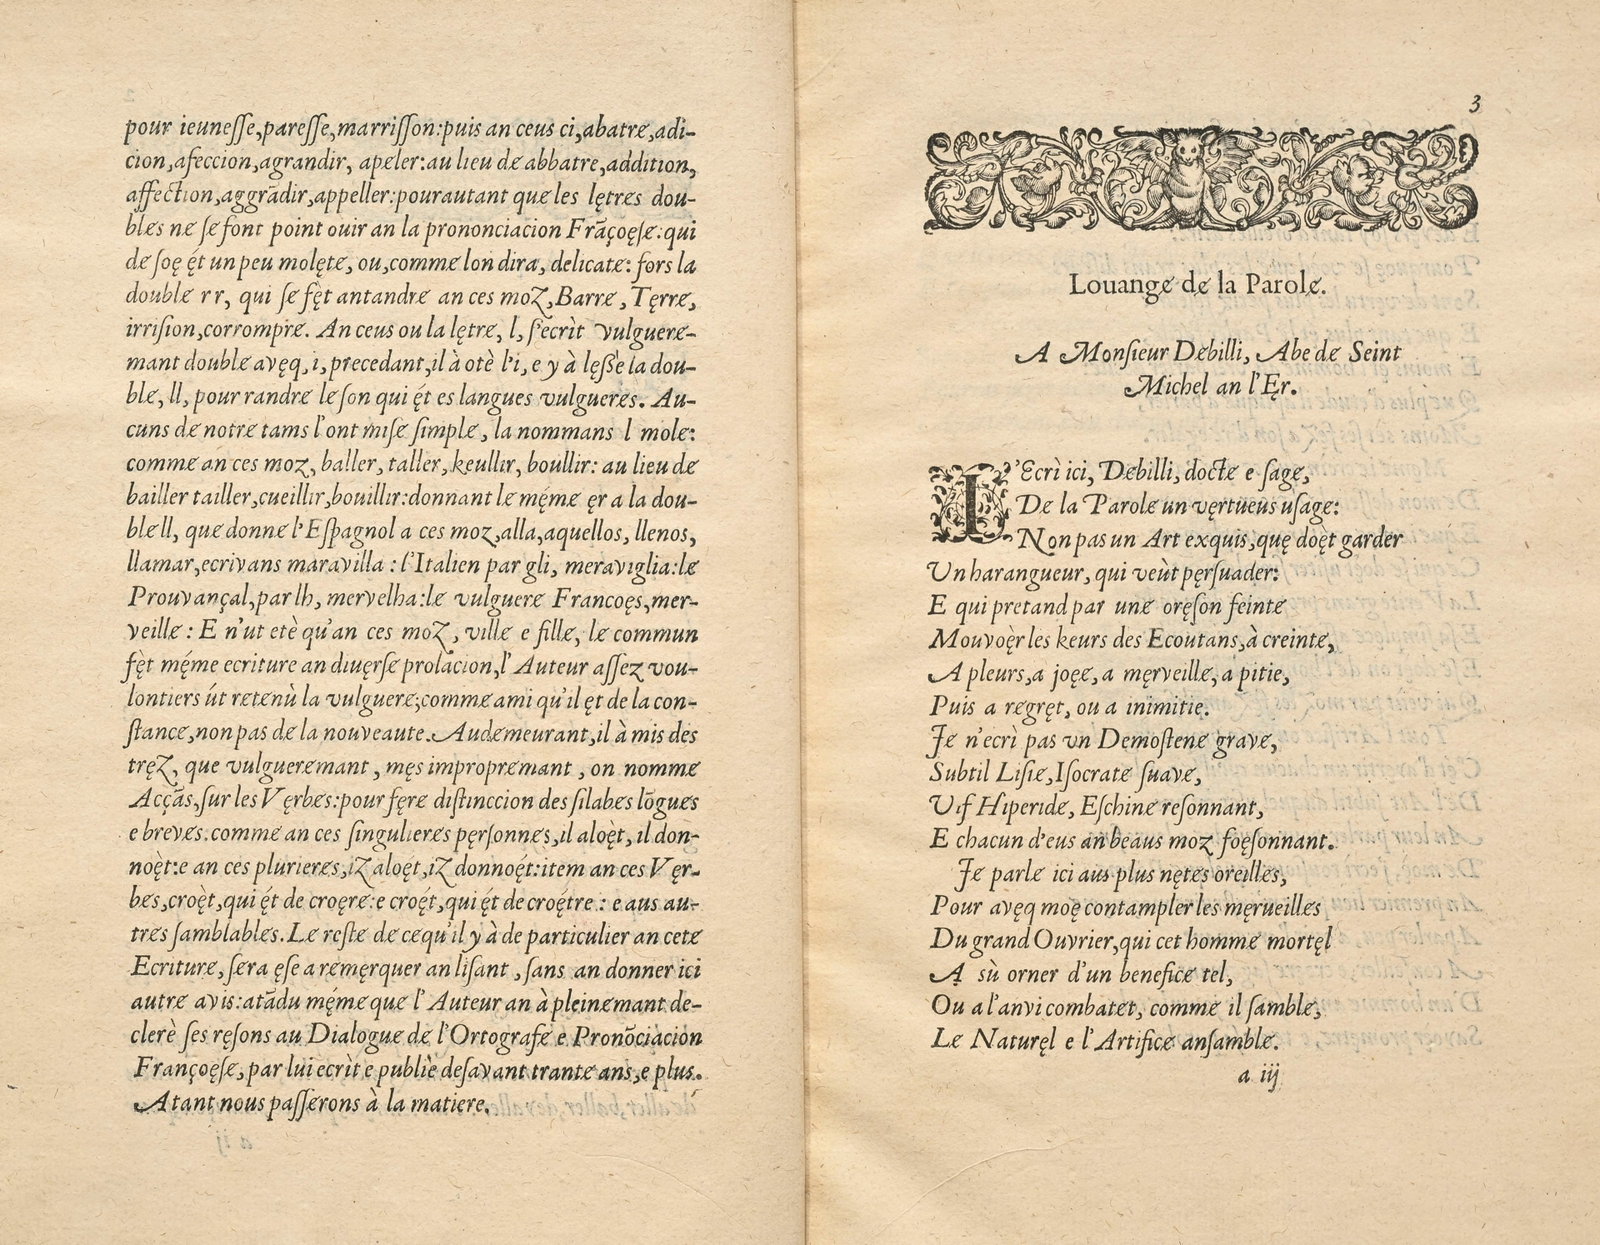 pour ieuneſſe, pareſſe, marriſſon: puis an ceus ci, abatre, adi-
cion, afeccion, agrandir, apeler: au lieu de abbatre, addition,
affection, aggrãdir, appeller: pourautant que les lętres dou-
bles ne ſe font point ouir an la prononciacion Frãçoęſe: qui
de ſoę ę́t un peu molęte, ou, comme lon dira, delicate: fors la
double rr, qui ſe fęt antandre an ces moz, Barre, Tęrre,
irriſion, corrompre. An ceus ou la lętre, l, ſ'ecrìt vulguere-
mant double avęq, i, precedant, il à otè l'i, e y à lęßè la dou-
ble, ll, pour randre le ſon qui ę́t es langues vulgueres. Au-
cuns de notre tams l'ont miſe ſimple, la nommans l mole:
comme an ces moz, baller, taller, keullir, boullir: au lieu de
bailler tailler, cueillir, bouillir: donnant le mę́me ęr a la dou-
ble ll, que donne l'Eſpagnol a ces moz, alla, aquellos, llenos,
llamar, ecrivans maravilla: l'Italien par gli, meraviglia: le
Prouvançal, par lh, mervelha: le vulguere Francoęs, mer-
veille: E n'ut etè qu'an ces moz, ville e fille, le commun
fęt mę́me ecriture an diuęrſe prolacion, l'Auteur aſſez vou-
lontiers út retenù la vulguere; comme ami qu'il ęt de la con-
ſtance, non pas de la nouveaute. Au demeurant, il à mis des
tręz, que vulgueremant, męs impropremant, on nomme
Acçãs, ſur les Vęrbes: pour fęre diſtinccion des ſilabes lõgues
e breves. comme an ces ſingulieres pęrſonnes, il aloę̀t, il don-
noę̀t: e an ces plurieres, iz aloę́t, iz donnoę́t: item an ces Vęr-
bes, croę̀t, qui ę́t de croęre: e croę́t, qui ę́t de croę́tre: e aus au-
tres ſamblables. Le reſte de ce qu'il y à de particulier an cete
Ecriture, ſera ęſe a remęrquer an liſant, ſans an donner ici
autre avis: atãdu mę́me que l'Auteur an à pleinemant de-
clerè ſes ręſons au Dialogue de l'Ortografe e Pronõciacion
Françoęſe, par lui ecrìt e publiè deſavant trante ans, e plus.
Atant nous paſſerons à la matiere.
3
Louange de la Parole.
A Monſieur Debilli, Abe de Seint
Michel an l'Ęr.
I'Ecrì ici, Debilli, docte e ſage,
De la Parole un vęrtueus uſage:
Non pas un Art exquis, quę doę̀t garder
Un harangueur, qui veùt pęrſuader:
E qui pretand par une oręſon feinte
Mouvoę̀r les keurs des Ecoutans, à creinte,
A pleurs, a joęe, a męrveille, a pitie,
Puis a regręt, ou a inimitie.
Je n'ecrì pas vn Demoſtene grave,
Subtil Liſie, Iſocrate ſuave,
Uif Hiperide, Eſchine reſonnant,
E chacun d'eus an beaus moz foęſonnant.
Je parle ici aus plus nętes oreilles,
Pour avęq moę contampler les męrueilles
Du grand Ouvrier, qui cet homme mortęl
A sù orner d'un benefice tel,
Ou a l'anvi combatet, comme il ſamble,
Le Naturęl e l'Artifice anſamble.
a iij